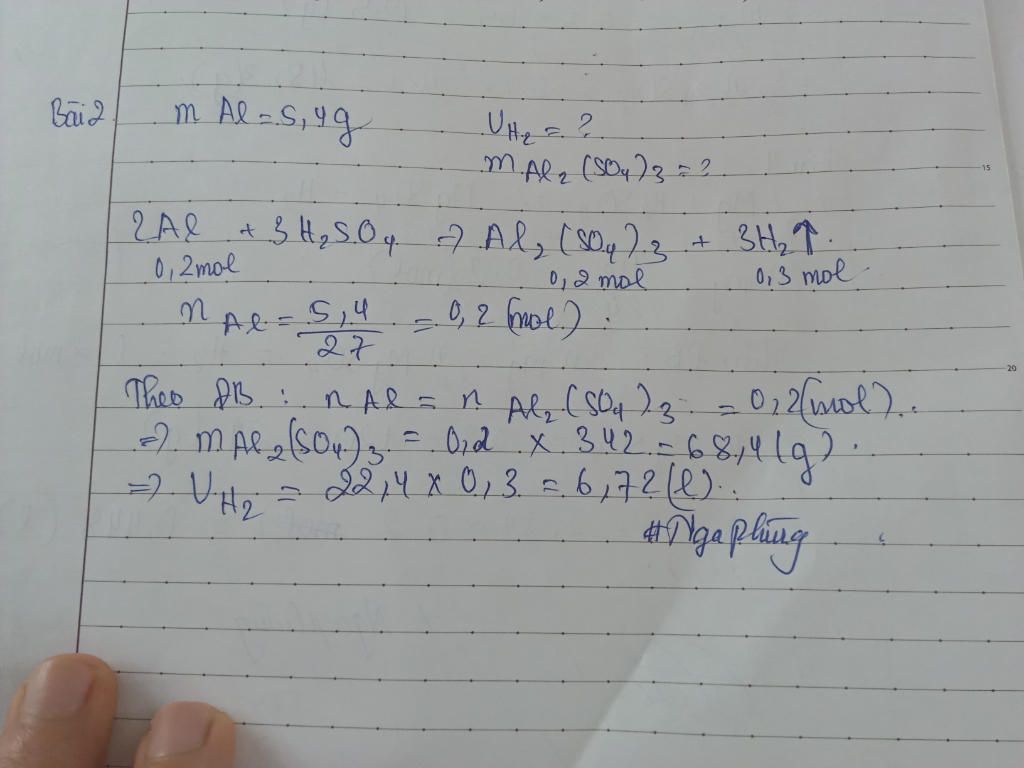 Bài 2 m Al = 5,4g V H2 = ?
m Al2(SO4)3 = ?
2Al + 3H2SO4 => Al2(SO4)3 + 3H2↑.
0,2mol 0,2 mol 0,3 mol
15
n Al = 5,4/27 = 0,2 (mol).
20
Theo ĐB : n Al = n Al2(SO4)3 = 0,2(mol).
=> m Al2(SO4)3 = 0,2 x 342 = 68,4(g).
=> V H2 = 22,4 x 0,3 = 6,72(l).
#Ngaphùng